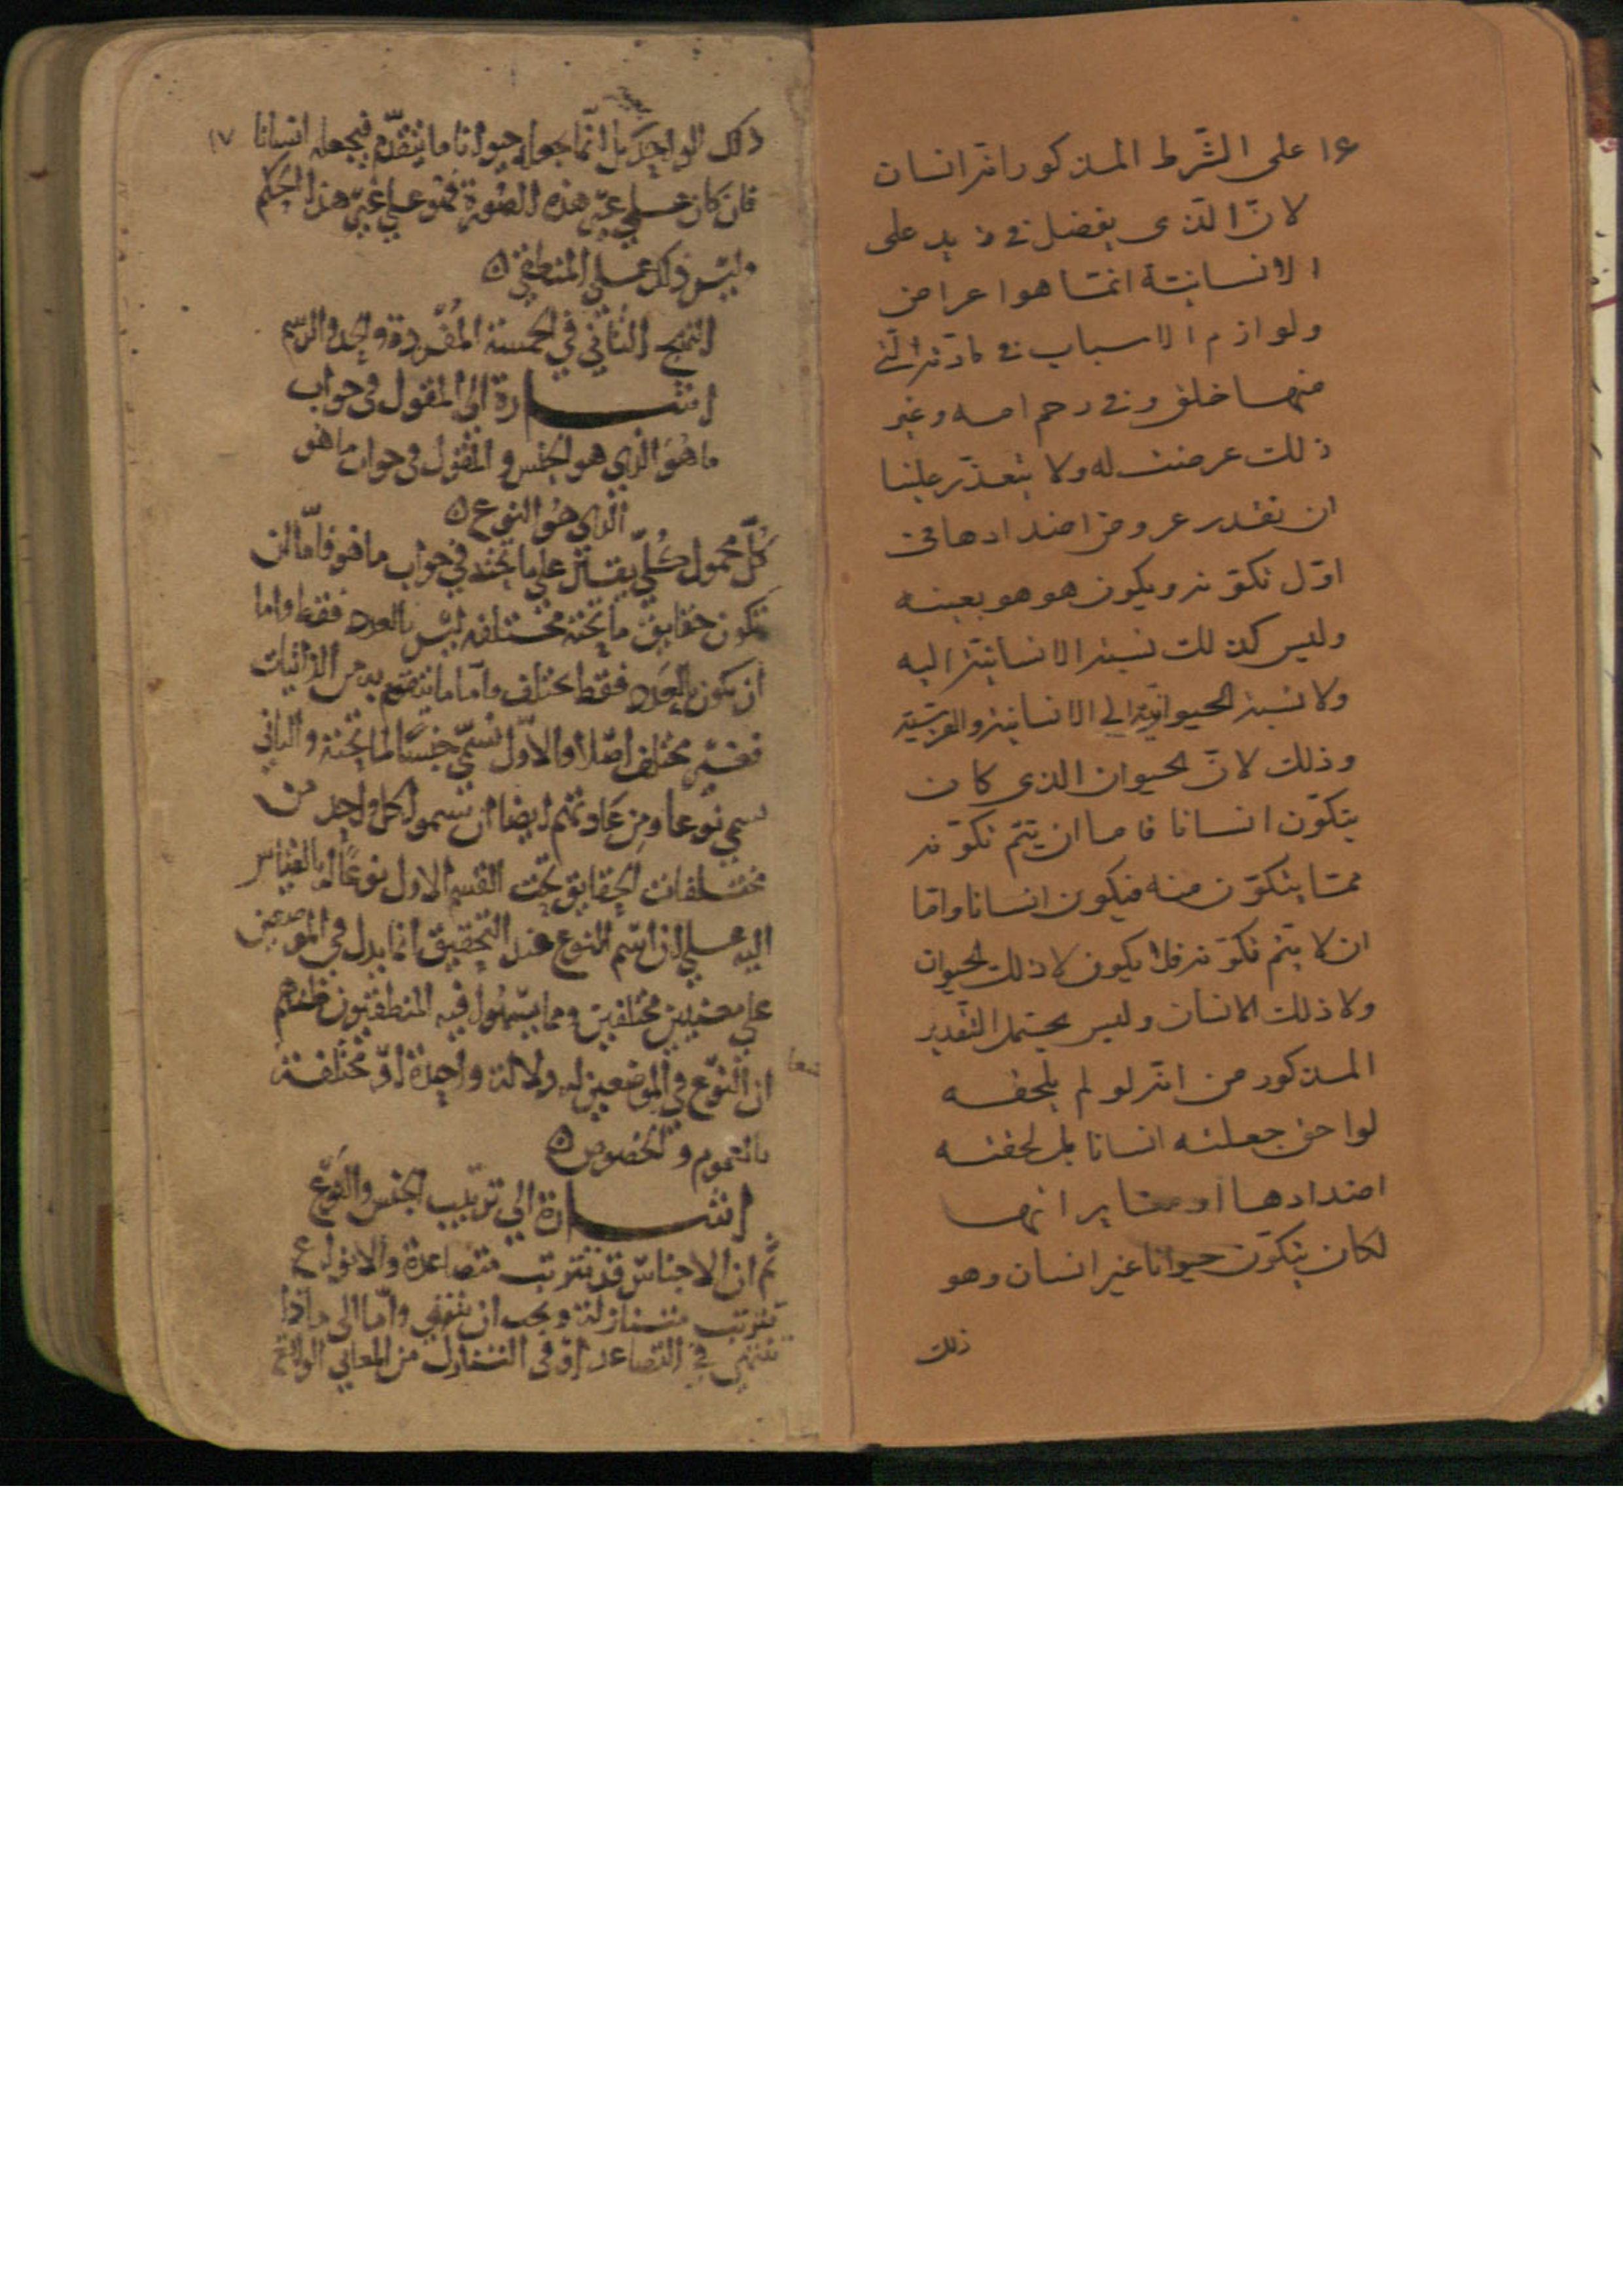 ١٤ على الشّرط المذكور انّه انسان
لانّ الّذى يفضل فى زيد على
الانسانيّة انّما هو اعراض
ولوازم الاسباب فى مادّته الّتى
منها خلق و فى رحم امه وغير
ذلك عرضت له ولا يتعذّر علينا
ان نقدر عروض اضدادها فى
اوّل تكوّنه ويكون هو هو بعينه
وليس كذلك نسبة الانسانيّة اليه
ولا نسبة الحيوانيّة الى الانسانيّة والفرسيّة
وذلك لانّ الحيوان الذى كان
يتكوّن انسانا فاما ان يتمّ تكوّنه
ممّا يتكوّن منه فيكون انسانا وامّا
ان لا يتمّ تكوّنه فلا يكون لا ذلك الحيوان
ولا ذلك الانسان وليس يحتمل التّقدير
المذكور من انّه لو لم يلحقه
لواحق جعلته انسانا بل لحقته
اضدادها او مغايراتها
لكان يتكوّن حيوانا غير انسان وهو
ذلك
ذلك الواحد بل انّما جعله حيوانا ما يتقدّم فيجعله انسانا ١٧
فان كان على غير هذه الصورة فهو على غير هذا الحكم
وليس ذلك على المنطقى ٥
النهج الثانى فى الخمسة المفردة والحد والرسم
اشارة الى المقول فى جواب
ما هو الذى هو الجنس والمقول فى جواب ما هو
الذى هو النوع ٥
كلّ محمول كلّى يقال على ما تحته فى جواب ما هو فامّا ان
تكون حقايق ما تحته مختلفه ليس بالعدد فقط واما
ان يكون بالعدد فقط مختلف واما ما يتقوم به من الذاتيات
فغير مختلف اصلا والاوّل يسمّى جنسا لما تحته والثانى
يسمى نوعا ومن عادتهم ايضا ان يسمو لكل واحد من
مختلفات الحقايق تحت القسم الاول نوعا له بالقياس
اليه على ان اسم النوع عند التحقيق انما يدل فى الموضعين
على معنيين مختلفين ومما يسهو فيه المنطقيون ظنهم
ان النوع فى الموضعين له دلالة واحدة او مختلفة
بالعموم والخصوص ٥
اشارة الى ترتيب الجنس والنوع
ثم ان الاجناس قد تترتب متصاعدة والانواع
تترتب متنازلة ويجب ان تنتهى واما الى ماذا
تنتهى فى التصاعد او فى التنازل من المعانى الواقع